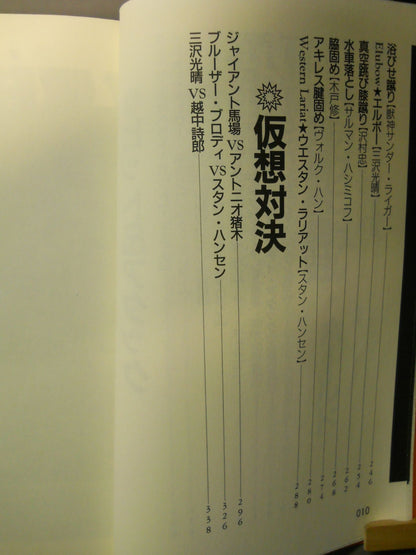 浴びせ蹴り【獣神サンダー・ライガー】 246
Elubow★エルボー【三沢光晴】 254
真空跳び膝蹴り【沢村忠】 262
水車落とし【サルマン・ハシミコフ】 268
脇固め【木戸修】 274
アキレス腱固め【ヴォルク・ハン】 280
Western Lariat★ウエスタン・ラリアット【スタン・ハンセン】 288
仮想対決
ジャイアント馬場 VS アントニオ猪木 296
ブルーザー・ブロディ VS スタン・ハンセン 326
三沢光晴 VS 越中詩郎 338
010